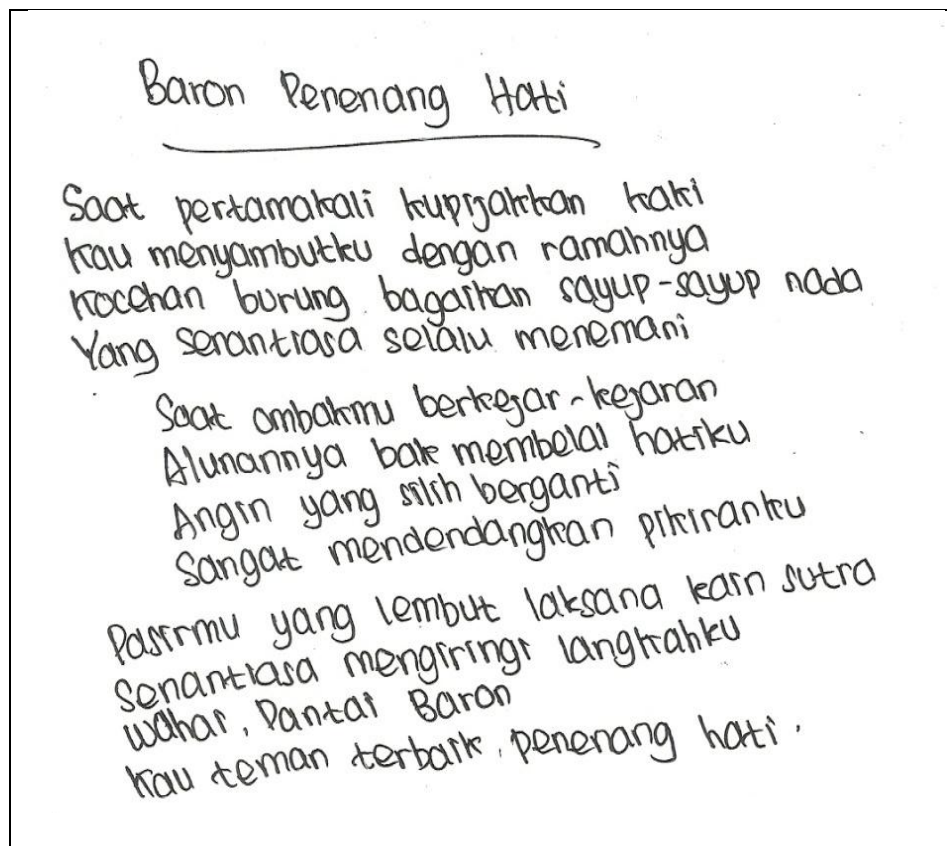 Baron Penenang Hati
Saat pertamakali kupijakkan kaki
Kau menyambutku dengan ramahnya
Kocehan burung bagaikan sayup-sayup nada
Yang senantiasa selalu menemani
Saat ombakmu berkejar-kejaran
Alunannya bak membelai hatiku
Angin yang silih berganti
Sangat mendendangkan pikiranku
Pasirmu yang lembut laksana kain sutra
Senantiasa mengiringi langkahku
Wahai, Pantai Baron
Kau teman terbaik, penenang hati.